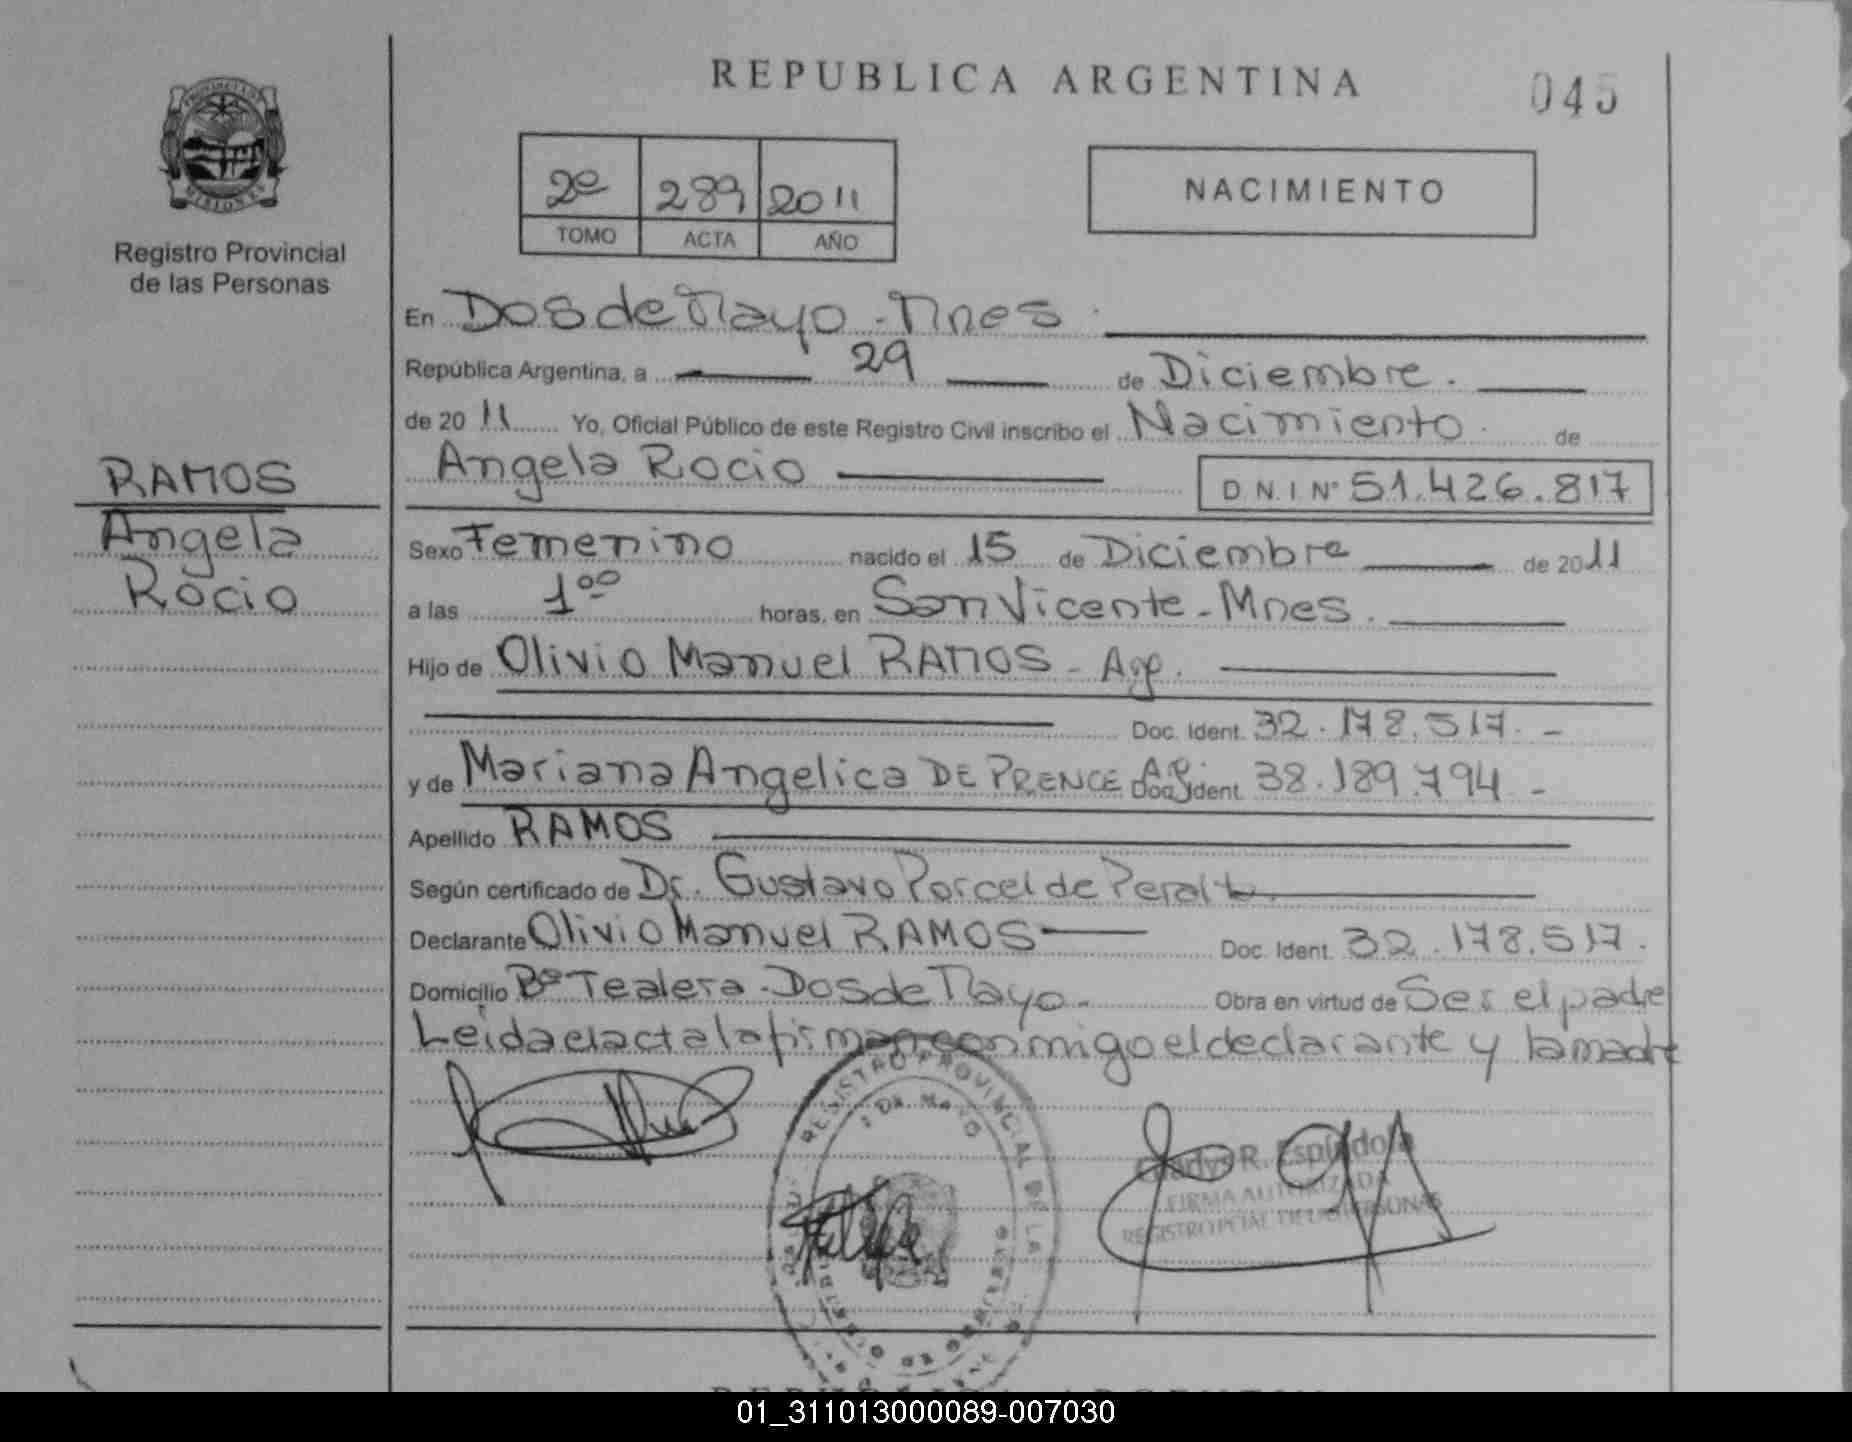 REPUBLICA ARGENTINA
045
PROVINCIA DE MISIONES
Registro Provincial
de las Personas
2º 289 2011
TOMO ACTA AÑO
NACIMIENTO
En Dos de Mayo - Mnes.
República Argentina, a 29 de Diciembre.
de 2011 Yo, Oficial Público de este Registro Civil inscribo el Nacimiento de
Angela Rocio D.N.I Nº 51.426.817
RAMOS
Angela
Rocio
Sexo Femenino nacido el 15 de Diciembre de 2011
a las 1ºº horas, en San Vicente - Mnes.
Hijo de Olivio Manuel RAMOS - Arg.
Doc. Ident. 32.178.517.-
y de Mariana Angelica DE PRENCE Arg. Doc. Ident. 38.189.794 -
Apellido RAMOS
Según certificado de Dr. Gustavo Porcel de Peralta.
Declarante Olivio Manuel RAMOS Doc. Ident. 32.178.517.
Domicilio Bº Tealera - Dos de Mayo. Obra en virtud de Ser el padre
Leida el acta la firman conmigo el declarante y la madre
REGISTRO PROVINCIAL DE LA
Gladys R. Espíndola
FIRMA AUTORIZADA
REGISTRO PCIAL DE LAS PERSONAS
REPUBLICA ARGENTINA
01_311013000089-007030